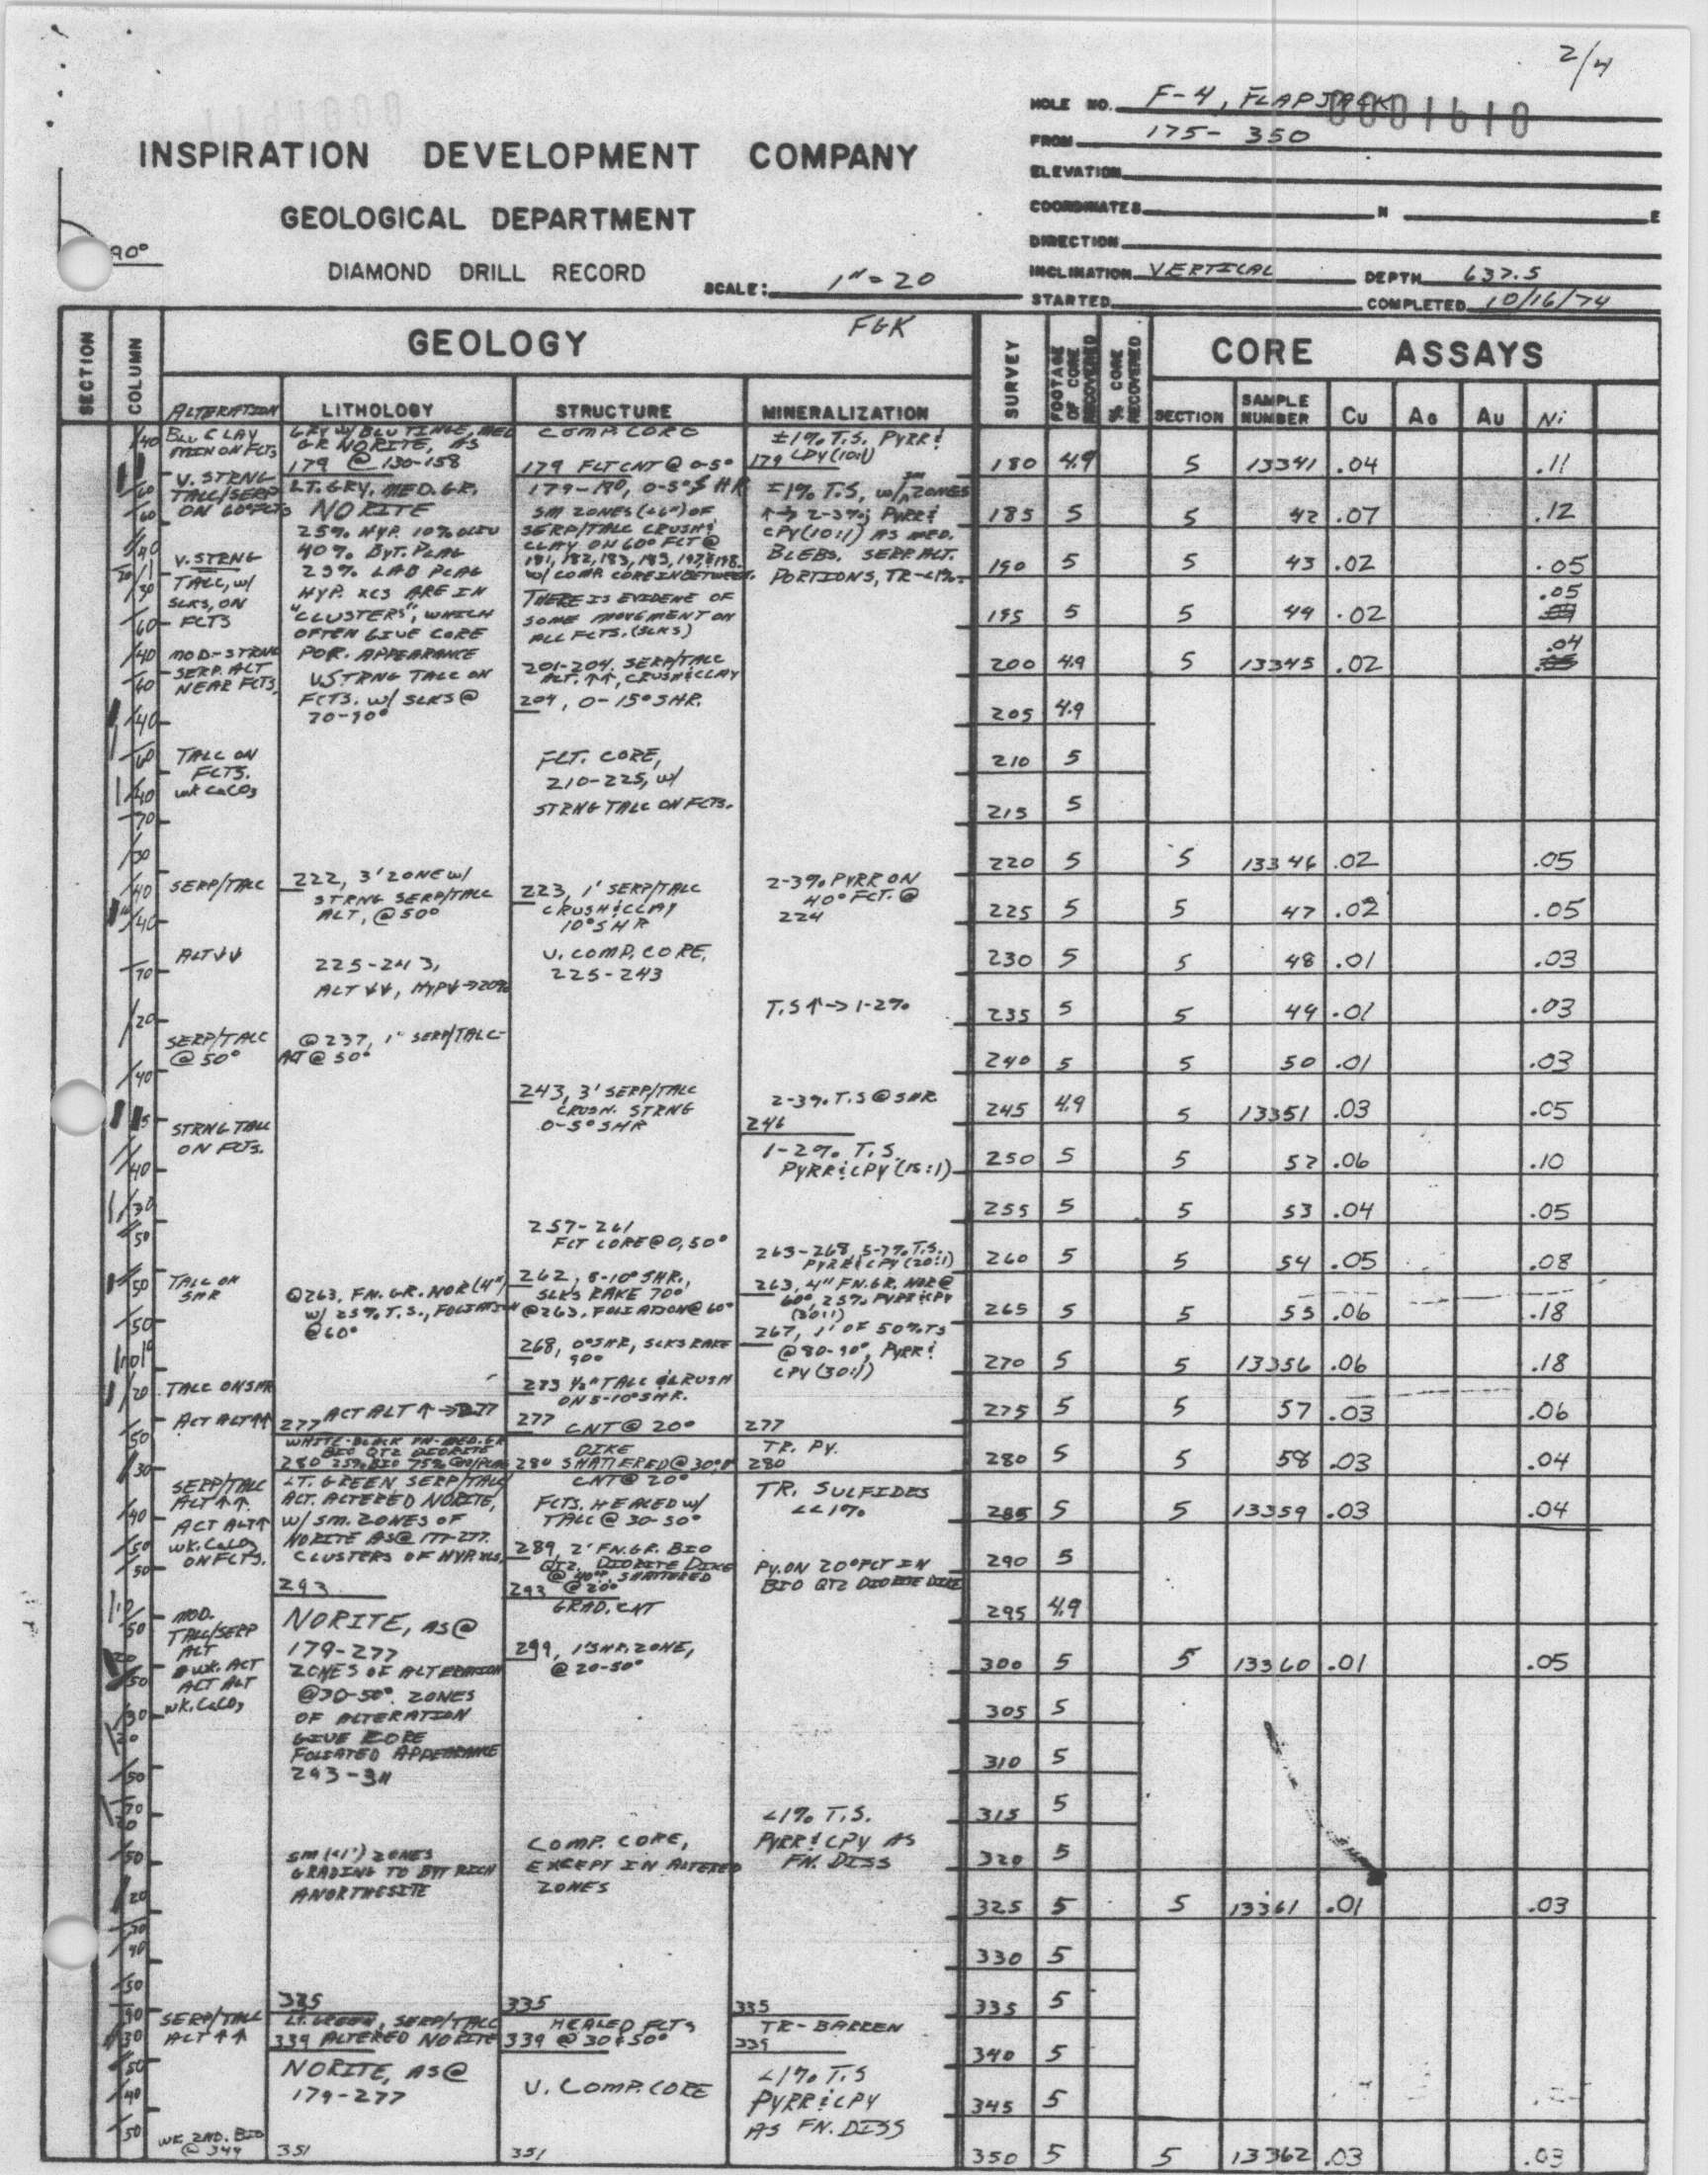 2/4
HOLE NO. F-4, FLAPJACK
0001610
FROM 175- 350
ELEVATION
COORDINATES N E
DIRECTION
INCLINATION VERTICAL DEPTH 637.5
STARTED COMPLETED 10/16/74
INSPIRATION DEVELOPMENT COMPANY
GEOLOGICAL DEPARTMENT
90°
DIAMOND DRILL RECORD SCALE: 1"=20
SECTION COLUMN GEOLOGY FGK SURVEY FOOTAGE OF CORE RECOVERED % CORE RECOVERED CORE ASSAYS
ALTERATION LITHOLOGY STRUCTURE MINERALIZATION SECTION SAMPLE NUMBER Cu Ag Au Ni
BLU CLAY
MIN ON FLTS
V. STRNG
TALC/SERP
ON 60° FLTS
V. STRNG
TALC, W/
SLKS, ON
FLTS
MOD-STRNG
SERP. ALT
NEAR FLTS
TALC ON
FLTS.
WK CaCO3
SERP/TALC
ALT↓↓
SERP/TALC
@ 50°
STRNG TALC
ON FLTS.
TALC ON
SHR
TALC ON SHR
ACT ALT↑↑
SERP/TALC
ALT↑↑
ACT ALT↑
WK. CaCO3
ON FLTS.
MOD.
TALC/SERP
ALT
WK. ACT
ACT ALT
WK. CaCO3
SERP/TALC
ALT↑↑
WK 2ND. BIO
@ 349
GRY W/ BLU TINGE, MED
GR NORITE, AS
179 @ 130-158
LT. GRY. MED. GR.
NORITE
25% HYP 10% OLIV
40% BYT. PLAG
25% LAB PLAG
HYP. XCS ARE IN
"CLUSTERS", WHICH
OFTEN GIVE CORE
POR. APPEARANCE
V STRNG TALC ON
FLTS. W/ SLKS @
70-90°
222, 3' ZONE W/
STRNG SERP/TALC
ALT, @ 50°
225-243,
ALT↓↓, HYP↓→20%
@ 237, 1" SERP/TALC-
ALT @ 50°
@263, FN. GR. NOR (4")
W/ 25% T.S., FOLIATION
@ 60°
ACT ALT↑→277
277
WHITE-BLACK FN-MED. GR
BIO QTZ DIORITE
280 25% BIO 75% QTZ/PLAG
LT. GREEN, SERP/TALC
ALT. ALTERED NORITE,
W/ SM. ZONES OF
NORITE AS @ 177-277.
CLUSTERS OF HYP. XLS,
293
NORITE, AS @
179-277
ZONES OF ALTERATION
@30-50°. ZONES
OF ALTERATION
GIVE CORE
FOLIATED APPEARANCE
293-311
SM (<1') ZONES
GRADING TO BYT RICH
ANORTHESITE
335
LT. GREEN, SERP/TALC
339 ALTERED NORITE
NORITE, AS @
179-277
351
COMP. CORE
179 FLT CNT @ 0-5°
179-190, 0-5° SHR
SM ZONES (<6") OF
SERP/TALC CRUSH &
CLAY ON 60° FLT @
W/ COMP. CORE IN BETWEEN.
THERE IS EVIDENE OF
SOME MOVEMENT ON
ALL FLTS. (SLKS)
201-204, SERP/TALC
ALT. ↑↑, CRUSH & CLAY
204, 0-15° SHR.
FLT. CORE,
210-225, W/
STRNG TALC ON FLTS.
223, 1' SERP/TALC
CRUSH & CLAY
10° SHR
V. COMP. CORE,
225-243
243, 3' SERP/TALC
CRUSH. STRNG
0-5° SHR
257-261
FLT CORE @ 0, 50°
262, 5-10° SHR.,
SLKS RAKE 70°
@ 263, FOLIATION @ 60°
268, 0° SHR, SLKS RAKE
90°
273 1/2" TALC & CRUSH
ON 5-10° SHR.
277 CNT @ 20°
DIKE
280 SHATTERED @ 30°
CNT @ 20°
FLTS. HEALED W/
TALC @ 30-50°
289, 2' FN. GR. BIO
QTZ. DIORITE DIKE
@ 40°, SHATTERED
293 @ 20°
GRAD. CNT
299, 1' SHR. ZONE,
@ 20-50°
COMP. CORE,
EXCEPT IN ALTERED
ZONES
335
HEALED FLTS
339 @ 30 & 50°
V. COMP. CORE
351
±1% T.S. PYRR &
179 CPY (10:1)
±1% T.S, W/ SM ZONES
↑→ 2-3%; PYRR &
CPY (10:1) AS MED.
BLEBS. SERP. ALT.
PORTIONS, TR-<1%.
2-3% PYRR ON
40° FLT. @
224
T.S↑→1-2%
2-3% T.S @ SHR
246
1-2% T.S.
PYRR & CPY (15:1)
263-268, 5-7% T.S.
PYRR & CPY (20:1)
263, 4" FN. GR. NOR @
60°, 25% PYRR & CPY
(30:1)
267, 1' OF 50% TS
@ 80-90°, PYRR &
CPY (30:1)
277
TR. PY.
280
TR. SULFIDES
<<1%
PY. ON 20° FLT IN
BIO QTZ DIORITE DIKE
<1% T.S.
PYRR & CPY AS
FN. DISS
335
TR-BARREN
339
<1% T.S
PYRR & CPY
AS FN. DISS
180 4.9 5 13341 .04 .11
185 5 5 42 .07 .12
190 5 5 43 .02 .05
195 5 5 44 .02 .05
200 4.9 5 13345 .02 .04
205 4.9
210 5
215 5
220 5 5 13346 .02 .05
225 5 5 47 .02 .05
230 5 5 48 .01 .03
235 5 5 49 .01 .03
240 5 5 50 .01 .03
245 4.9 5 13351 .03 .05
250 5 5 52 .06 .10
255 5 5 53 .04 .05
260 5 5 54 .05 .08
265 5 5 55 .06 .18
270 5 5 13356 .06 .18
275 5 5 57 .03 .06
280 5 5 58 .03 .04
285 5 5 13359 .03 .04
290 5
295 4.9
300 5 5 13360 .01 .05
305 5
310 5
315 5
320 5
325 5 5 13361 .01 .03
330 5
335 5
340 5
345 5
350 5 5 13362 .03 .03